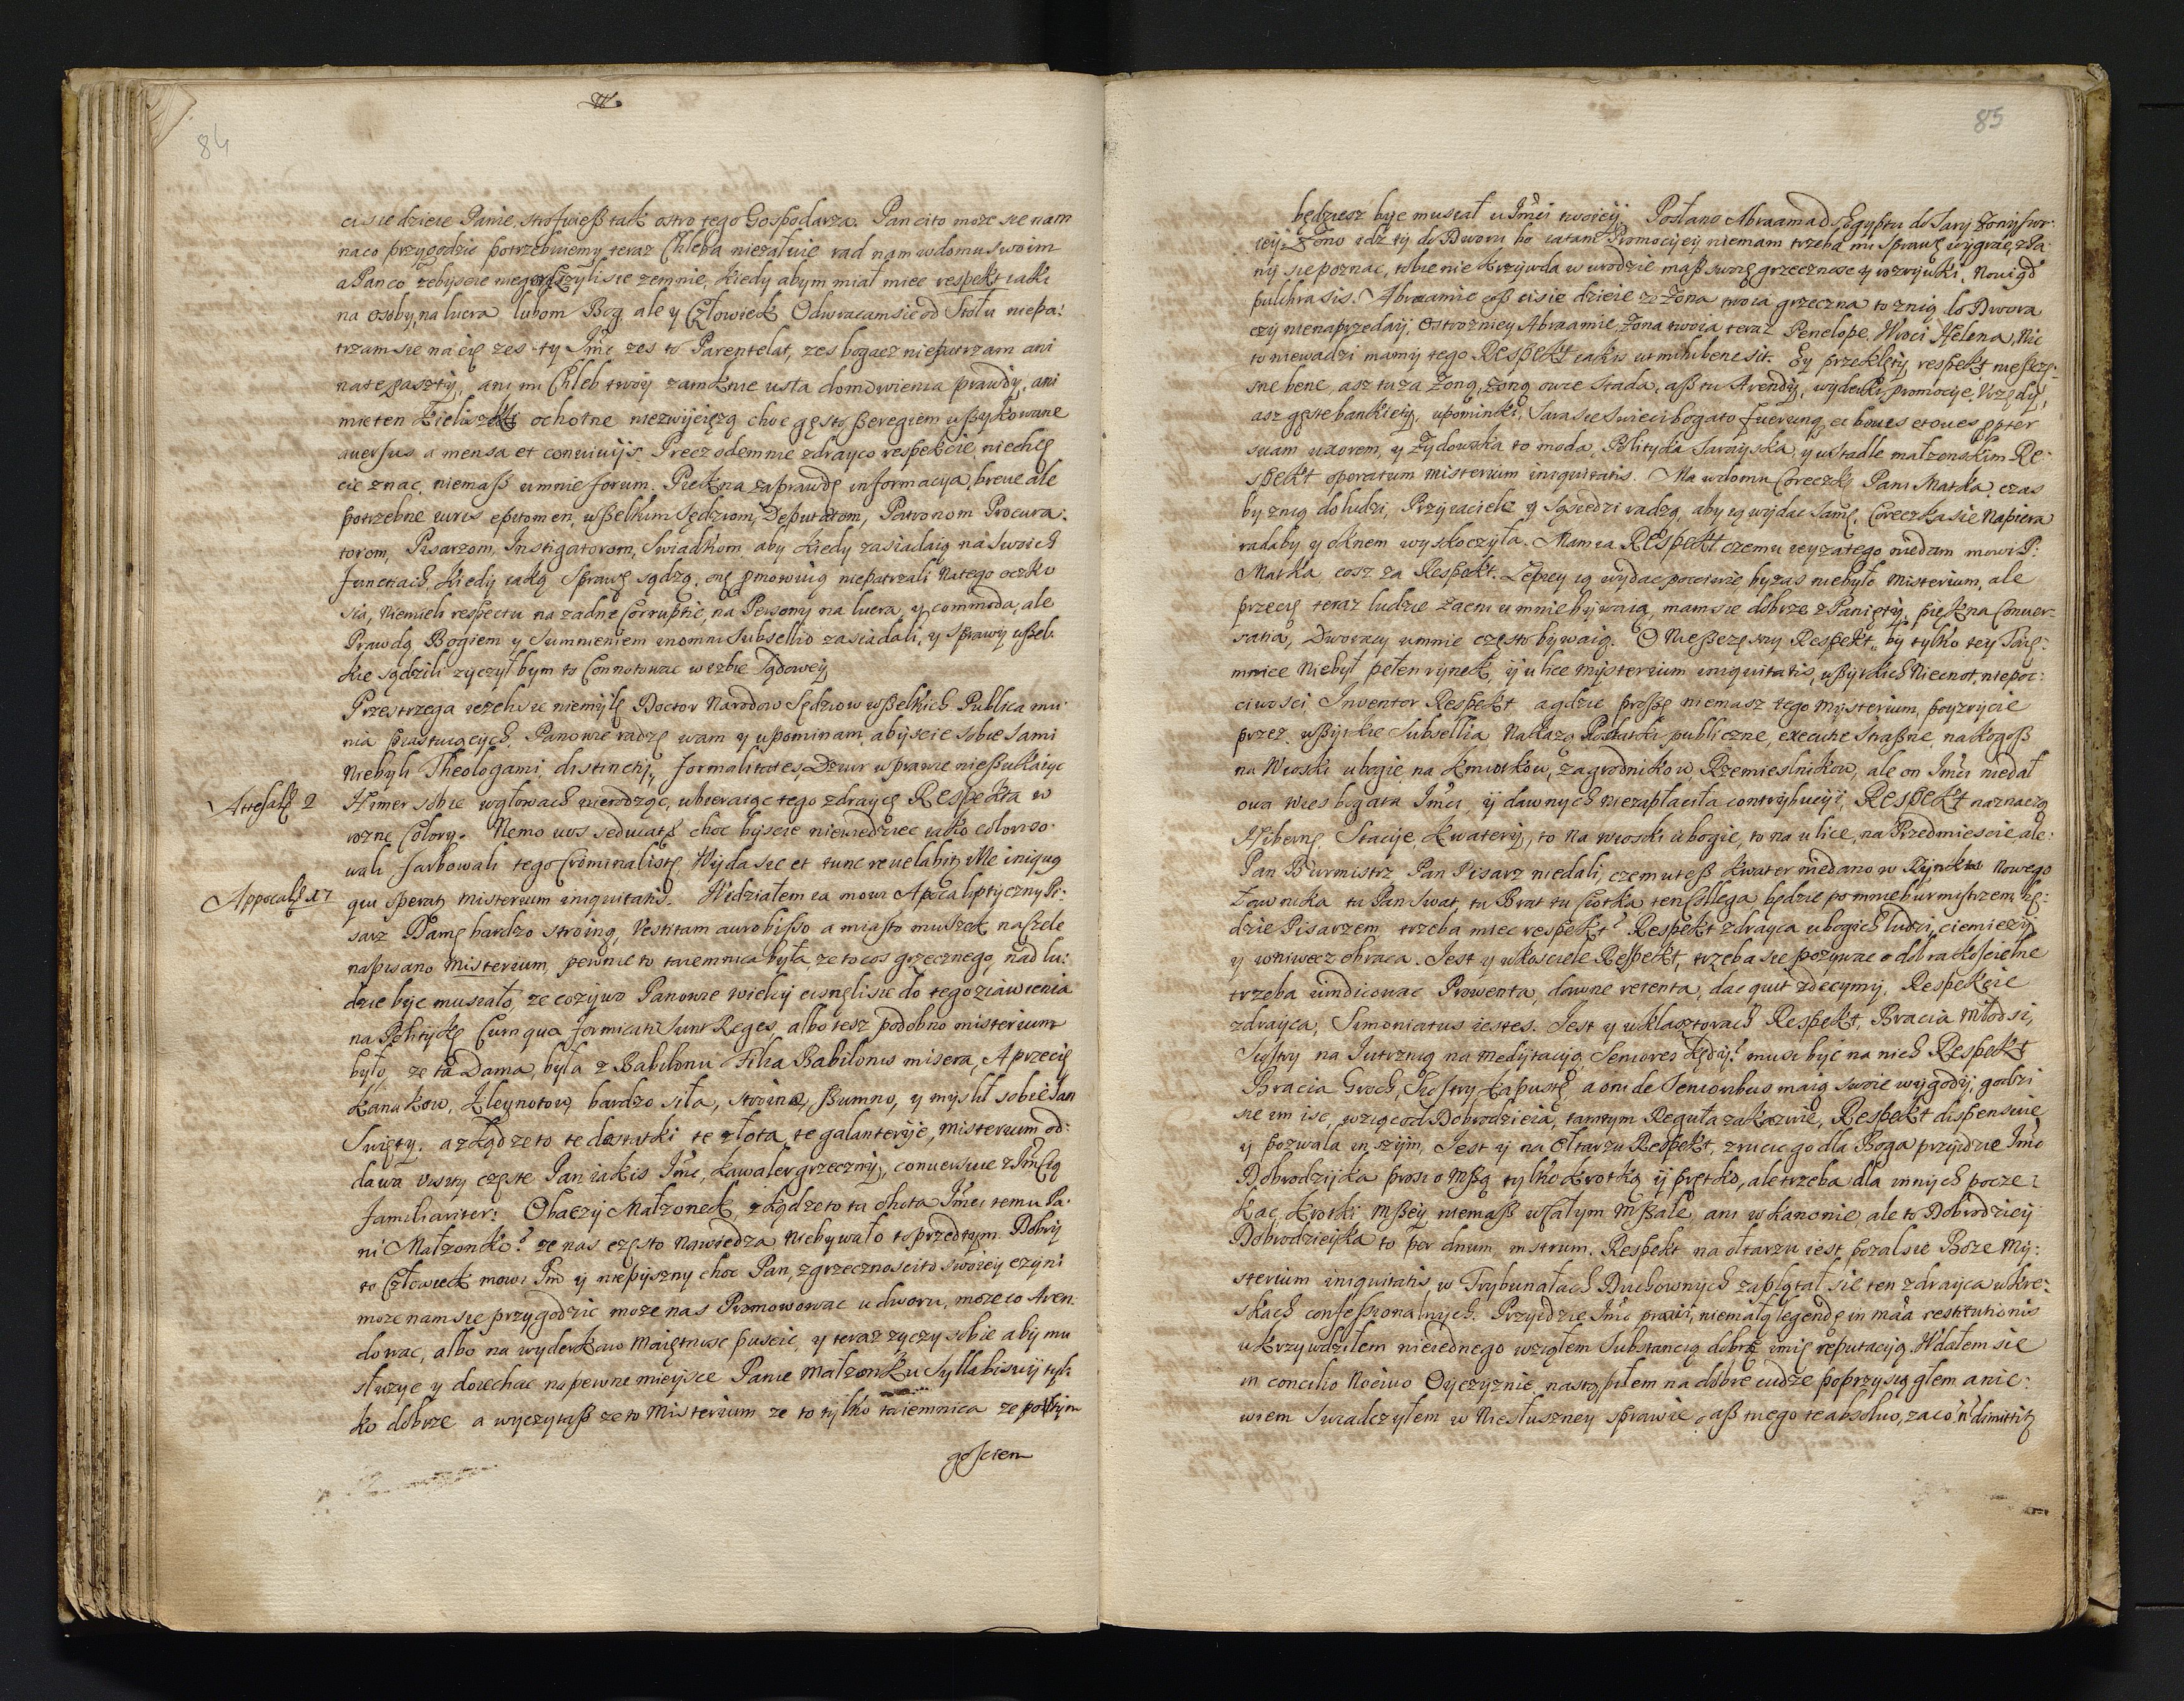 84
ci sie dzieie Panie, strofuieß tak ostro tego Gospodarza. Pan ci to moze sie nam
naco przygodzie potrzebuiemy teraz Chleba niezałuie rad nam w domu swoim
a Panco zebyscie niegorszyli sie zemnie, kiedy abym miał miec respekt iaki
na osoby, na lucra lubom Bog ale y Człowiek Odwracam sie od Stołu niepa:
trzam sie na cię zes ty Jmc zes to Parentelat, zes bogacz niepatrzam ani
na te paszty, ani mi Chleb twoy zamknie usta do mowienia prawdy, ani
mie ten Kieliszek ochotne niezwycięzą choc gęsto ßeregiem ußykowane
auersus a mensa et conuiuijs. Precz odemnie zdrayco respekcie, niechcę
cie znac, niemaß u mnie forum. Piekna zaprawdę informacija, breue ale
potrzebne iuris epitomen, ußelkim Sędziom, Deputatom, Patronom Procura:
torom, Pisarzom, Instigatorom, Swiadkom aby kiedy zasiadaią na swoich
functiach, kiedy iaką sprawę sądzą, onę promowuią niepatrzali na tego oczko
sia, niemieli respectu na zadne Corruptie, na Persony na lucra, y commoda, ale
Prawdą Bogiem y Sumnieniem in omni Subsellio zasiadali, y sprawy ußel:
kie sądzili zyczył bym to Connotowac w izbie Sądowey
Przestrzega iezeli sie niemylę Doctor Narodow Sędziow wßelkich Publica mu:
nia piastuiących, Panowie radzę wam y upominam, abyscie sobie sami
niebyli Theologami, distinctij, formalitates Dziur w prawie nießukaiąc
Attesalß 2
Himer sobie w głowach nierodząc, ubieraiąc tego zdraycę Respekta w
rozne Colory. Nemo vos seducat, choc byscie niewiedziec iako coloriso:
wali farbowali tego Criminalistę, Wyda sie et tunc reuelabit, Ille iniquus
Appocalß 17
qui sperat misterium iniquitatis. Widziałem ia mowi Apocaliptyczny Pi:
sarz Damę bardzo stroiną, Vestitam auro bisso a miasto muszek na czele
napisano Misterium, pewnie to taiemnica była, ze to cos grzecznego, nad lu:
dzie byc musiało, ze co zywo Panowie wielcy cisnęli sie do tego ziawienia
na Politykę Cum qua fornicati sunt Reges, albo tesz podobno misterium
było, ze ta Dama, była z Babilonu Filia Babilonis misera, A przecię
kanakow, kleynotow, bardzo siła, stroino, ßumno, y myslił sobie Jan
Swięty, a zkąd ze to te dostatki te złota, te galanterye, misterium od:
dawa visity częste Pan iakis Jmc, kawaler grzeczny, conuersuie z Jmcią
familiariter: Obaczy Małzonek, zkądze to ta ochota Jmci temu Pa:
ni Małzonko? ze nas często nawiedza niebywało to przedtym. Dobry
to Człowiek mowi Jmc y niepyszny choc Pan, z grzecznosci to swoiey czyni
moze nam sie przygodzic moze nas Promowowac u dworu, moze co Aren:
dowac, albo na wyderkow Maiętnosc puscic, y teraz zyczy sobie aby mu
słuzyc y doiechac na pewne mieysce Panie Małzonku Syllabisuy tyl:
ko dobrze a wyczytaß ze to Misterium ze to tylko taiemnica ze po tym
gosciem
85
będziesz byc musiał u Jmci twoiey. Posłano Abraama do Egyptu do Sary Zony swo:
iey. Zono idz ty do Dworu bo ia tam Promocyey niemam trzeba mi sprawę wygrac, z Pa:
ny sie poznac, tobie nie krzywda w urodzie maß swoię grzecznosc y rozrywki, Noui qd
pulchra sis. Abraamie coß ci sie dzieie ze Zona twoia grzeczna to z nią do Dwora
czy nienaprzedaij. Ostrozniey Abraamie, zona twoia teraz Penelope, Wroci Helena, Nic
to niewadzi mamy tego Respekt iakis ut mihi bene sit. Ey przeklęty respekt nießczę:
sne bene, asz tu za Zoną, Zoną owce Stada, aß tu Arendy, wyderki, promocye, Vrzędy,
asz gęste bankiety, upominki, Sara sie swieci bogato fuerunq ei boues et oues propter
suam uxorem, y Zydowska to moda, Polityka Sarayska, y w stadle małzenskim Re:
spekt operatum misterium iniquitatis. Ma w domu Coreczkę Pani Matka, czas
by z nią do ludzi, Przyiaciele y Sąsiedzi radzą, aby ią wydac samę, Coreczka sie napiera
rada by y oknem wyskoczyła. Mam ia Respekt czemu iey za tego niedam mowi P:
Matka, cosz za Respekt. Lepiey ią wydac poczciwie by zas niebyło misterium, ale
przecię teraz ludzie zacni u mnie bywaią, mam sie dobrze z Panięty, piękna Conuer:
satia, Dworacy u mnie często bywaią. O Nießczęsny Respekt, by tylko tey Taię:
mnice niebył pełen rynek, y ulice mysterium iniquitatis, ußyßtkich Niecnot, niepoc:
ciwosci Inuentor Respekt agdzie proßę niemasz tego mysterium, poyzrycie
przez ußyßtkie Subsellia Nakażą Podatki publiczne, executie straßne, na kogoß
na wioski ubogie na kmiotkow, zagrodnikow, Rzemieslnikow, ale on Jmci niedał
owa wies bogata Jmci, y dawnych niezapłaciła contrybucyi, Respekt naznaczą
Hibernę, Stacije, kwatery, to na wioski ubogie, to na ulice, na Przedmiescie, ale
Pan Burmistrz Pan Pisarz niedali, czemu teß kwater niedano w Rynku Nowego
Ławnika tu Pan Swat, tu Brat tu Ciotka ten Collega będzie po mnie burmistrzem, bę:
dzie Pisarzem trzeba miec respekt? Respekt zdrayca ubogich ludzi, ciemiezy
y w niwecz obraca. Jest y w kosciele Respekt, trzeba sie pozywac o dobra koscielne
trzeba uindicowac Prowenta, dawne retenta, dac quit z decymy, Respekcie
zdrayca, Simoniatus iestes. Jest y w klasztorach Respekt, Bracia młodsi,
Siostry na Jutrznią na medytacyią Seniores kędy? musi byc na nich Respekt
Bracia Groch, Siostry kapustę, a oni de Senioribus maią swoie wygody, godzi
sie im isc, wziąc od Dobrodzieia, tamtym Reguła zakazuie, Respekt dispensuie
y pozwala inszym, Jest y na Ołtarzu Respekt, zrucic go dla Boga przyidzie Jmc
Dobrodzijka prosi o mßą tylko krotką y prętko, ale trzeba dla innych pocze:
kac, krotki mßey niemaß w całym mßale, ani w kanonie, ale to Dobrodziey
Dobrodzieyka to per dnum nstrum. Respekt na ołtarzu iest pozal sie Boze My:
sterium iniquitatis, w Trybunałach Duchownych zaplątał sie ten zdrayca w kre:
skach confessionalnych. Przyidzie Jmc prawi, niemałą legendę in maa restitutionis
ukrzywdziłem nieiednego wziąłem Substancyą dobrą imię reputacyą. Wdałem sie
in concilio Nociuo Oyczyznie, nastąpiłem na dobre cudze poprzysiągłem a nie:
wiem Swiadczyłem w Niesłuszney sprawie, aß mego te absoluo, za co n dimittit